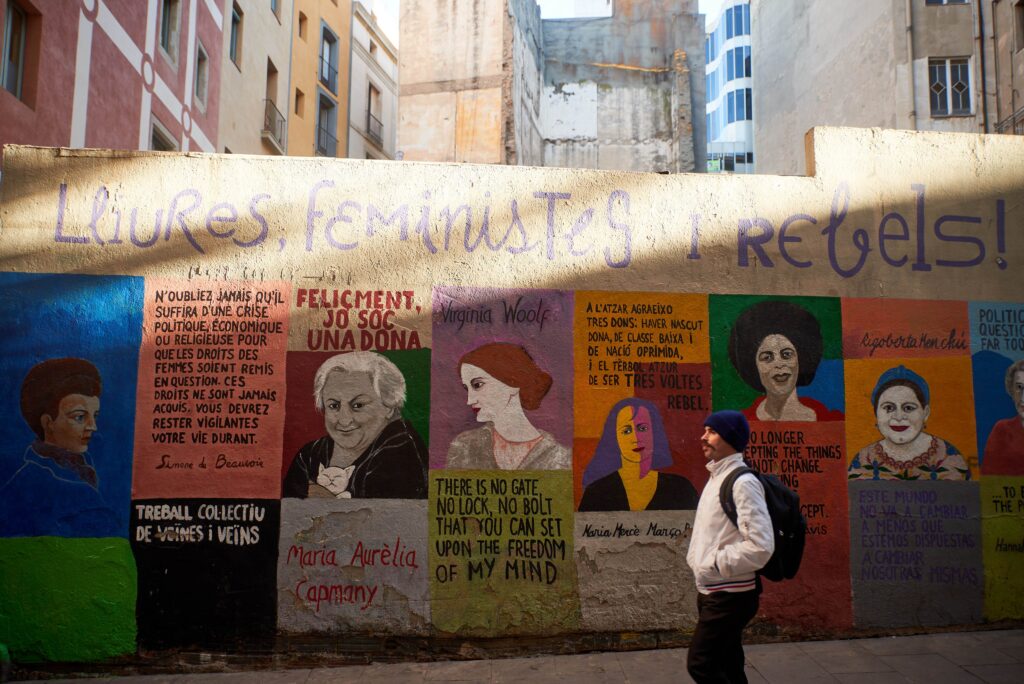 Lliures, feministes i rebels!
N'OUBLIEZ JAMAIS QU'IL
SUFFIRA D'UNE CRISE
POLITIQUE, ÉCONOMIQUE
OU RELIGIEUSE POUR
QUE LES DROITS DES
FEMMES SOIENT REMIS
EN QUESTION. CES
DROITS NE SONT JAMAIS
ACQUIS. VOUS DEVREZ
RESTER VIGILANTES
VOTRE VIE DURANT.
Simone de Beauvoir
TREBALL COL·LECTIU
DE VEÏNES I VEÏNS
FELIÇMENT,
JO SÓC
UNA DONA
Maria Aurèlia
Capmany
Virginia Woolf
THERE IS NO GATE,
NO LOCK, NO BOLT
THAT YOU CAN SET
UPON THE FREEDOM
OF MY MIND
A L'ATZAR AGRAEIXO
TRES DONS: HAVER NASCUT
DONA, DE CLASSE BAIXA I
DE NACIÓ OPRIMIDA,
I EL TÈRBOL ATZUR
DE SER TRES VOLTES
REBEL.
Maria Mercè Març
NO LONGER
THE THINGS
NOT CHANGE.
Rigoberta Menchú
ESTE MUNDO
NO VA A CAMBIAR
A MENOS QUE
ESTEMOS DISPUESTAS
A CAMBIAR
NOSOTRAS MISMAS
POLITICA
QUESTION
FAR TOO
...TO
THE P
Hanna